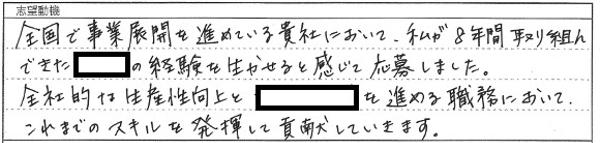 志望動機
全国で事業展開を進めている貴社において、私が8年間取り組ん
できた の経験を生かせると感じて応募しました。
全社的な生産性向上と を進める職務において、
これまでのスキルを発揮して貢献していきます。